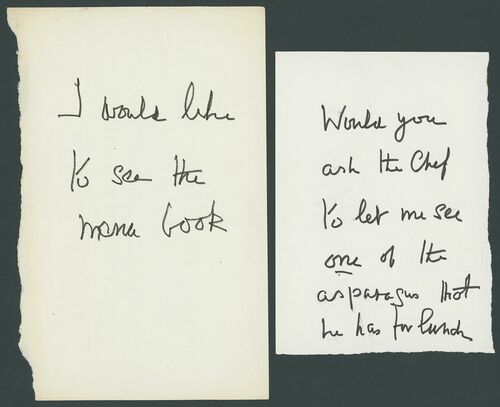 I would like
to see the
menu book
Would you
ask the Chef
to let me see
one of the
asparagus that
he has for lunch